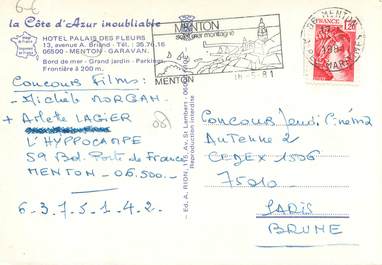 6-6
la Côte d'Azur inoubliable
HOTEL PALAIS DES FLEURS
13, avenue A. Briand - Tél. : 35.76.16
06500 - MENTON - GARAVAN.
Bord de mer - Grand jardin - Parking
Frontière à 200 m.
Concours Films :
- Michèle MORGAN -
+ Arlette LAGIER
L'HYPPOCAMPE
59 Bd. Porte de France
MENTON - 06.500 -
6-3.7.5.1.4.2.
Ed. A. RION, 116, Av. St Lambert - 06100
Reproduction interdite
MENTON
MENTON
MENTON
1981
FRANCE
Concours Jeudi Cinéma
ANTENNE 2
CEDEX 1506
75010
PARIS
BRUNE